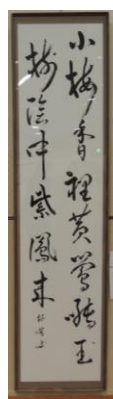 小梅香裡黄鶯囀玉
樹陰中紫鳳来